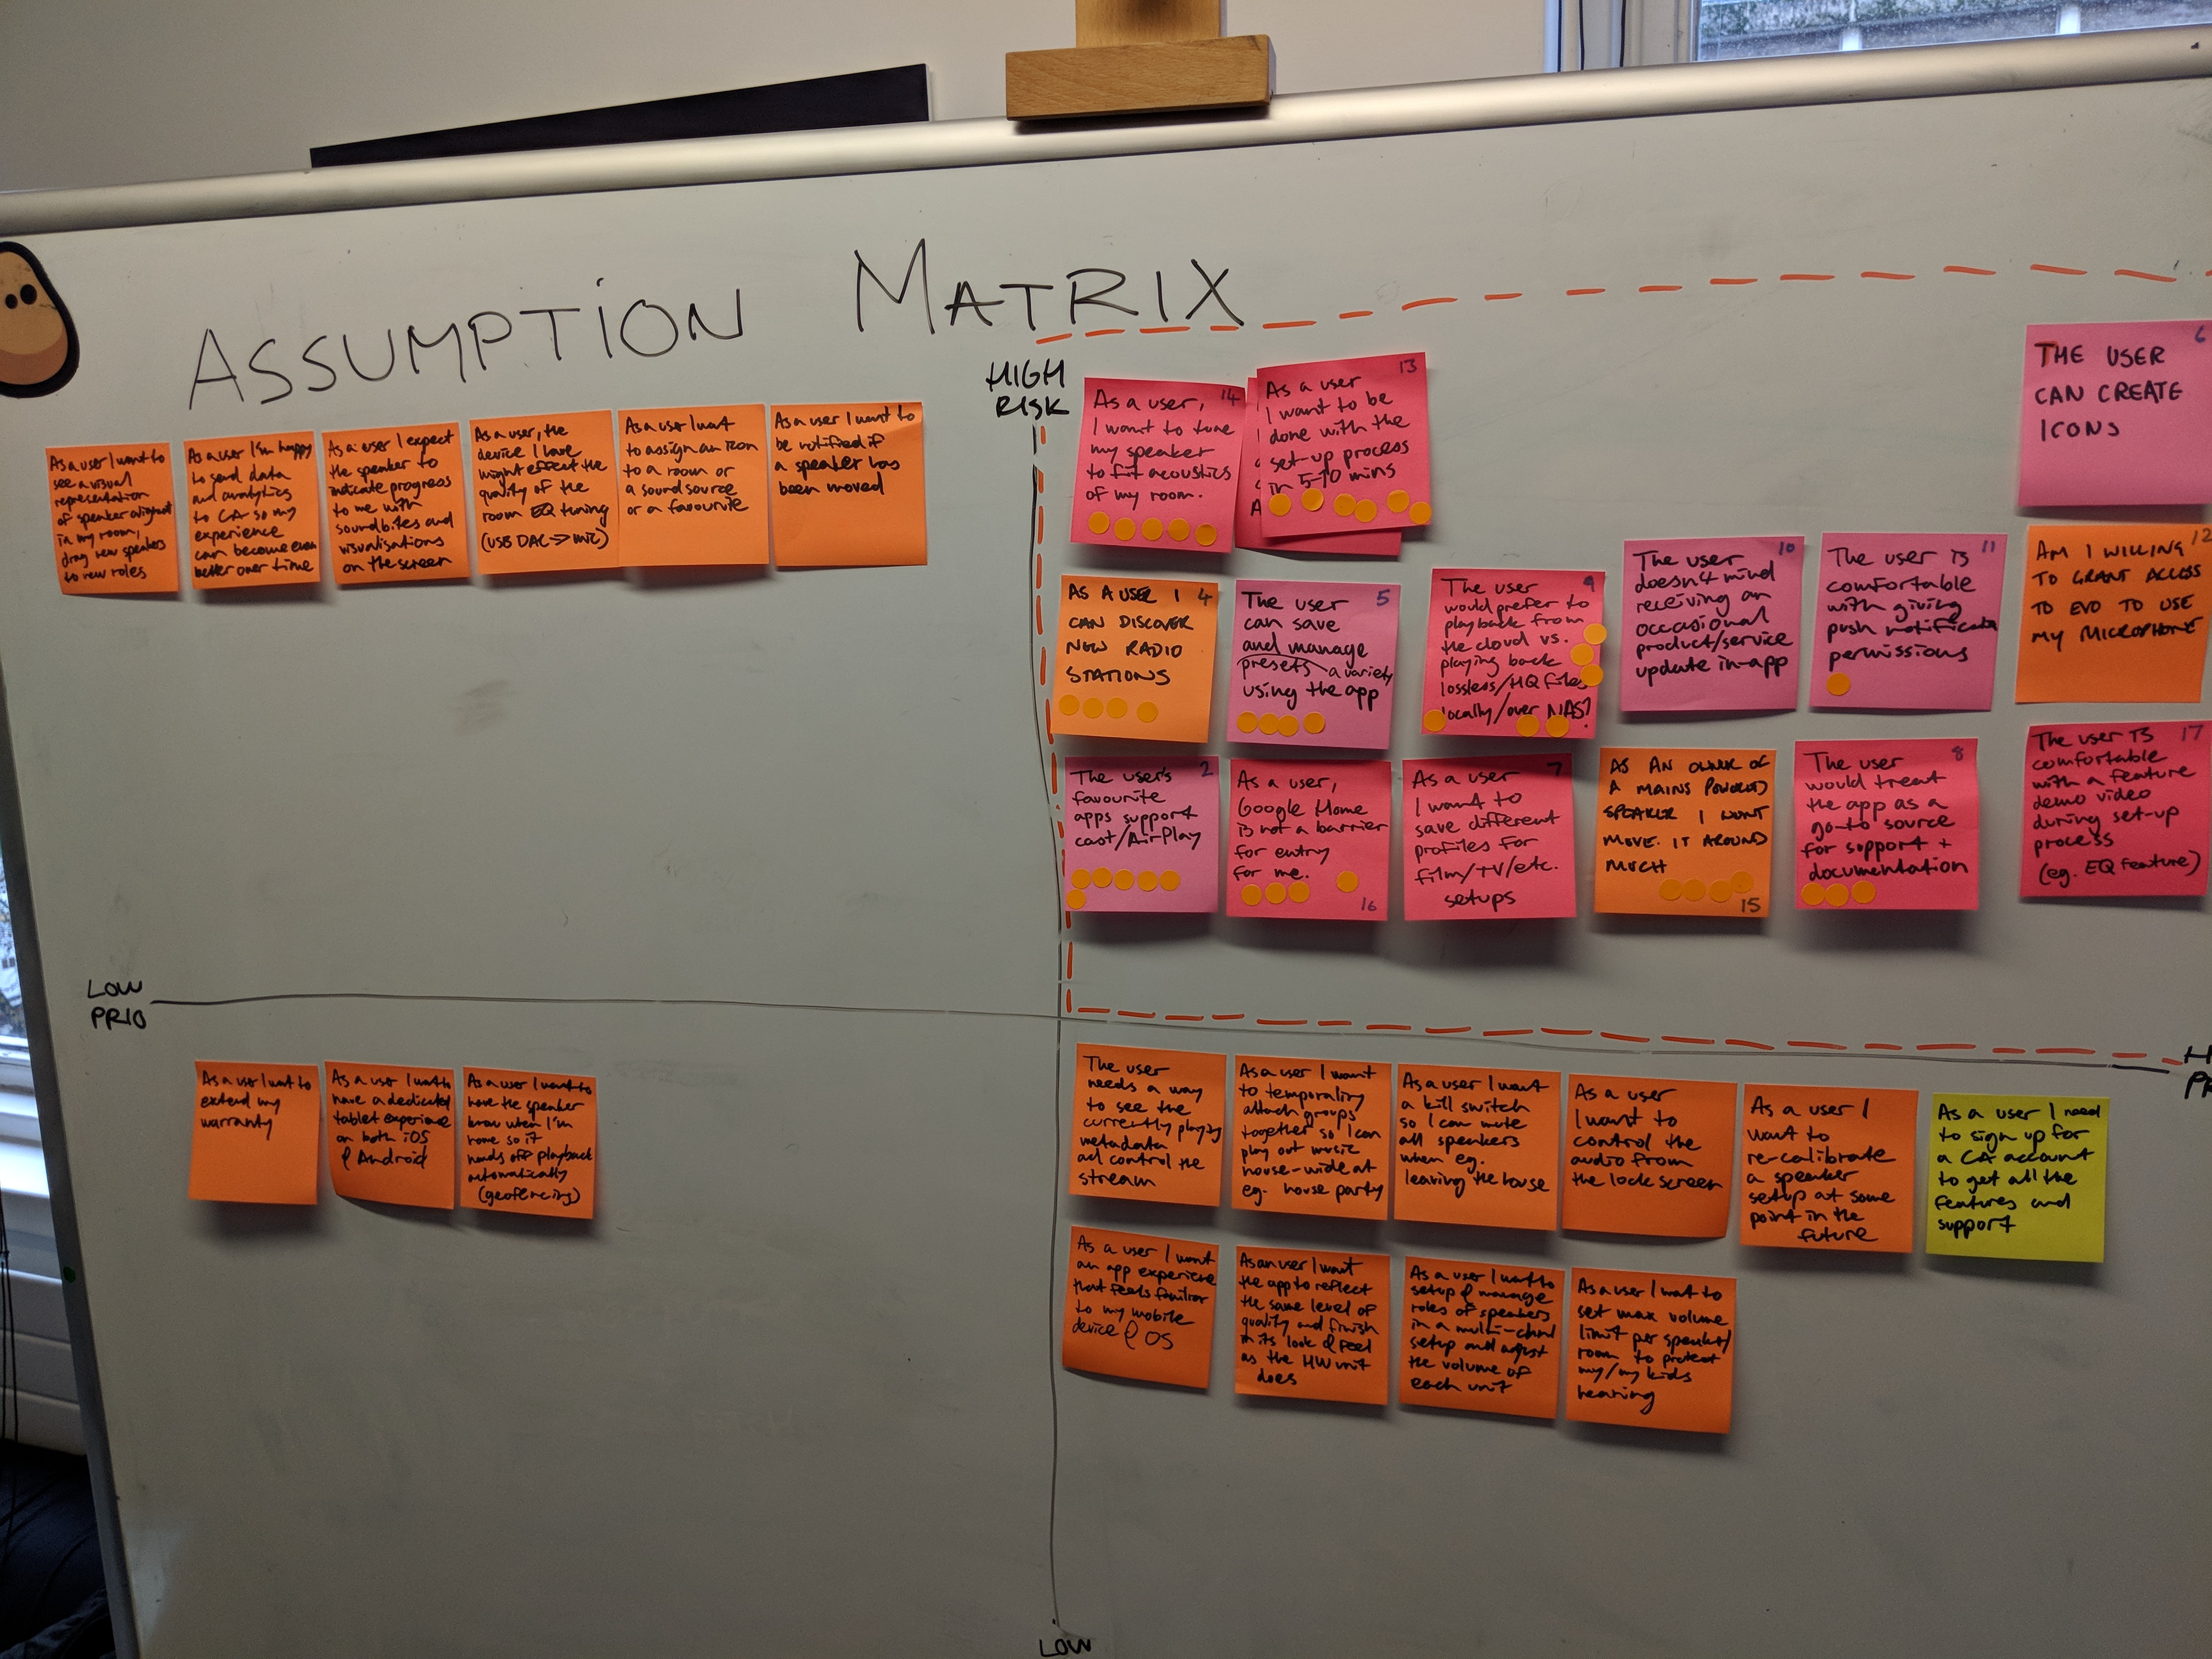 ASSUMPTION MATRIX
HIGH
RISK
As a user I want to
see a visual
representation
of speaker aligned
in my room,
drag new speakers
to new roles
As a user I'm happy
to send data
and analytics
to CA so my
experience
can become even
better over time
As a user I expect
the speaker to
indicate progress
to me with
soundbites and
visualisations
on the screen
As a user, the
device I have
might effect the
quality of the
room EQ tuning
(USB DAC -> mic)
As a user I want
to assign an icon
to a room or
a sound source
or a favourite
As a user I want to
be notified if
a speaker has
been moved
14
As a user,
I want to tune
my speaker
to fit acoustics
of my room.
13
As a user
I want to be
done with the
set-up process
in 5-10 mins
A
6
THE USER
CAN CREATE
ICONS
4
AS A USER I
CAN DISCOVER
NEW RADIO
STATIONS
5
The user
can save
and manage
presets a variety
using the app
9
The user
would prefer to
playback from
the cloud vs.
playing back
lossless/HQ files
locally/over NAS?
10
The user
doesn't mind
receiving an
occasional
product/service
update in-app
11
The user is
comfortable
with giving
push notificatn
permissions
12
AM I WILLING
TO GRANT ACCESS
TO EVO TO USE
MY MICROPHONE
2
The user's
favourite
apps support
cast/AirPlay
As a user,
Google Home
is not a barrier
for entry
for me.
16
7
As a user
I want to
save different
profiles for
film/TV/etc.
setups
AS AN OWNER OF
A MAINS POWERED
SPEAKER I WONT
MOVE IT AROUND
MUCH
15
8
The user
would treat
the app as a
go-to source
for support +
documentation
17
The user is
comfortable
with a feature
demo video
during set-up
process
(eg. EQ feature)
LOW
PRIO
H
PR
As a user I want to
extend my
warranty
As a user I want to
have a dedicated
tablet experience
on both iOS
& Android
As a user I want to
have the speaker
know when I'm
home so it
hands off playback
automatically
(geofencing)
The user
needs a way
to see the
currently playing
metadata
and control the
stream
As a user I want
to temporality
attach groups
together so I can
play out music
house-wide at
eg. house party
As a user I want
a kill switch
so I can mute
all speakers
when eg.
leaving the house
As a user
I want to
control the
audio from
the lock screen
As a user I
want to
re-calibrate
a speaker
setup at some
point in the
future
As a user I need
to sign up for
a CA account
to get all the
features and
support
As a user I want
an app experience
that feels familiar
to my mobile
device & OS
As an user I want
the app to reflect
the same level of
quality and finish
in its look & feel
as the HW unit
does
As a user I want to
setup & manage
roles of speakers
in a multi-chnl
setup and adjust
the volume of
each unit
As a user I want to
set max volume
limit per speaker/
room to protect
my/my kids
hearing
LOW